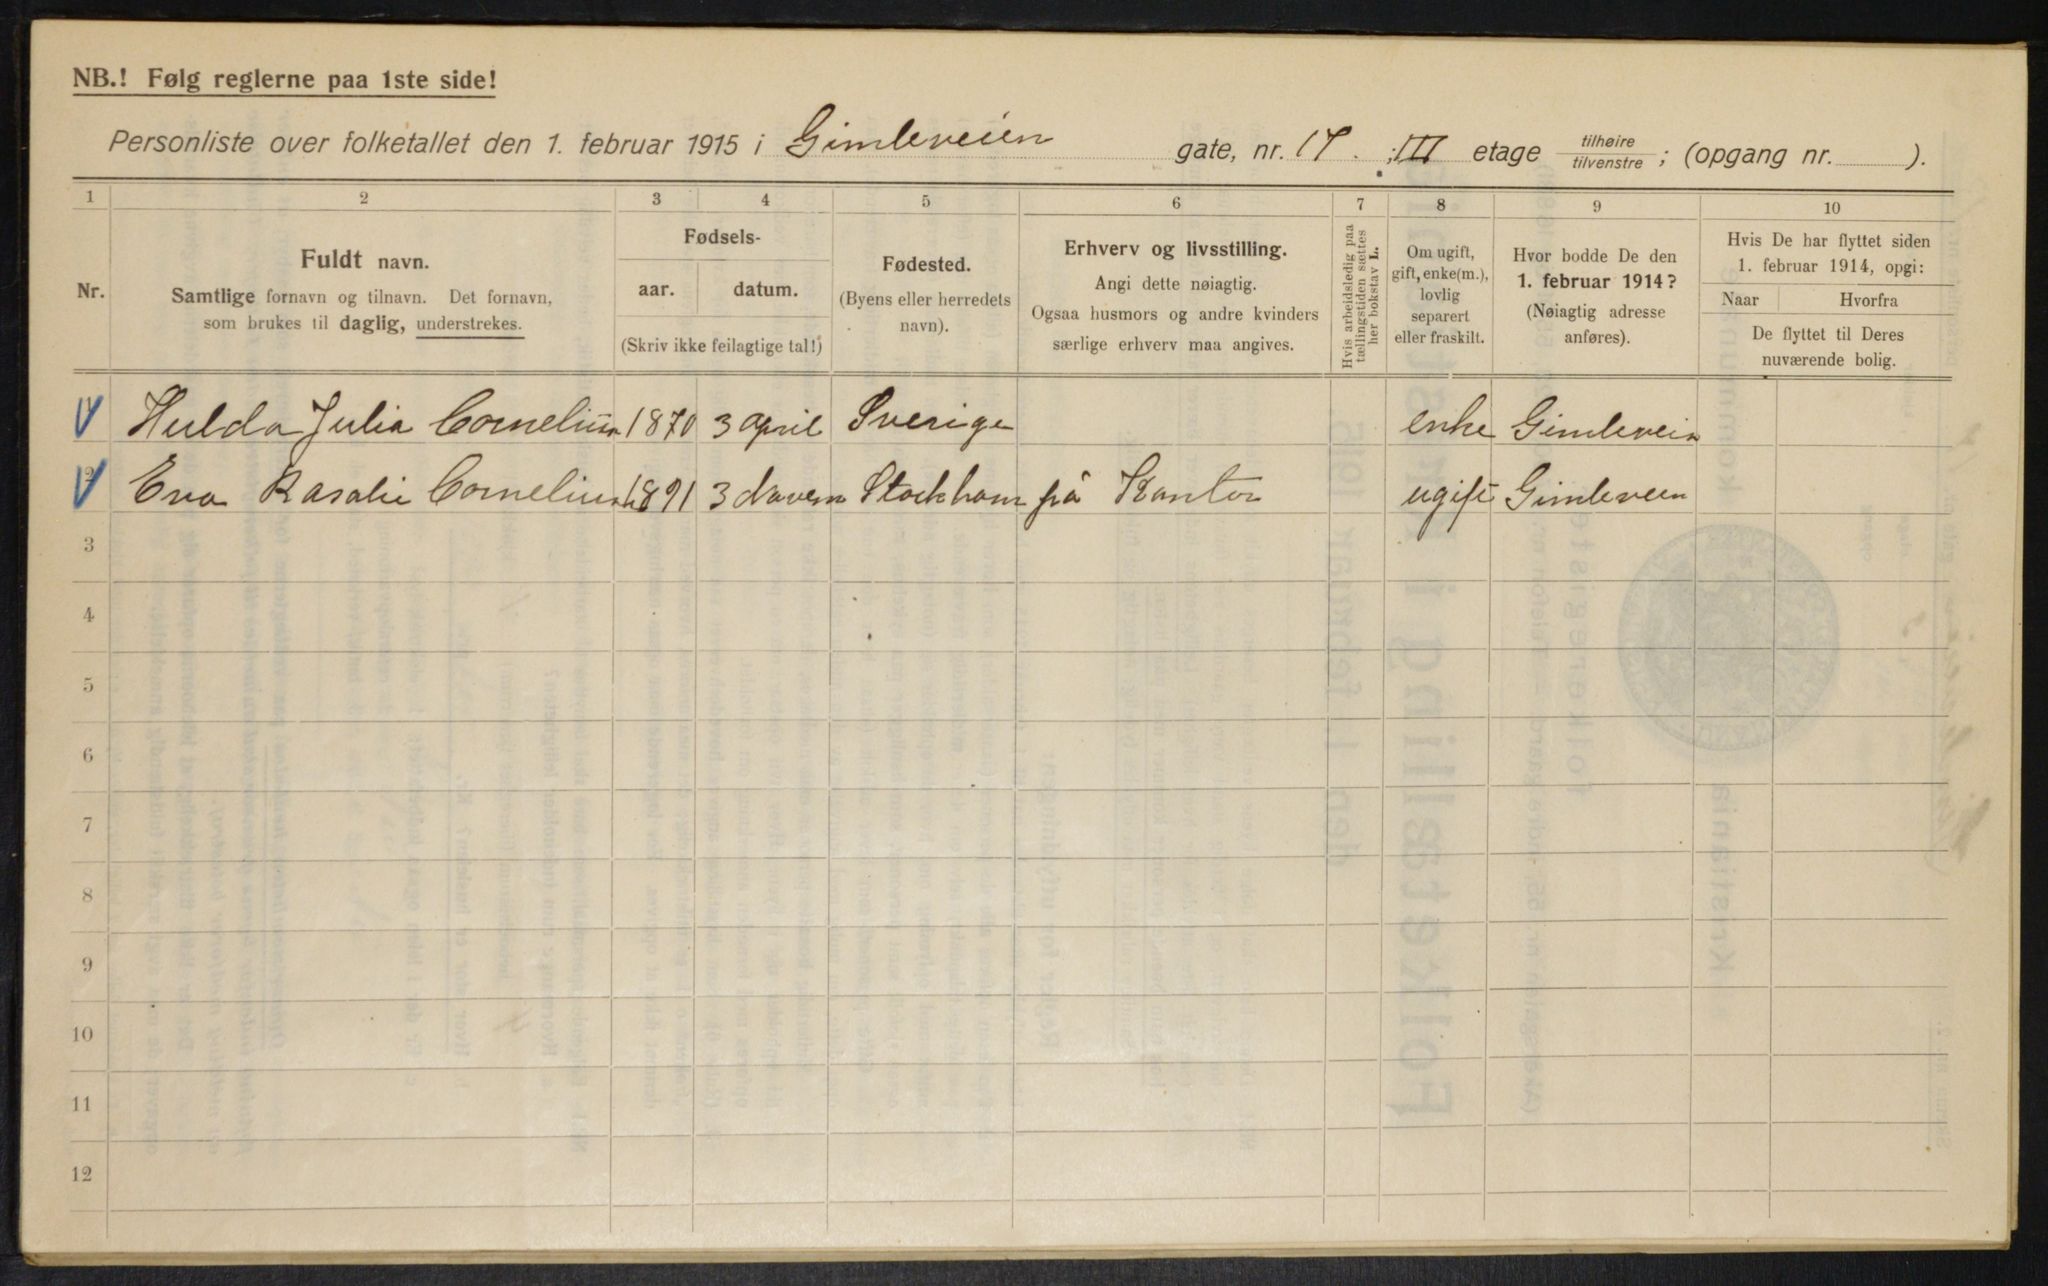 NB.! Følg reglerne paa 1ste side!
Personliste over folketallet den 1. februar 1915 i Gimleveien gate, nr. 17. ; III etage tilhøire / tilvenstre ; (opgang nr. ).
1 2 3 4 5 6 7 8 9 10
Nr.
Fuldt navn.
Samtlige fornavn og tilnavn. Det fornavn,
som brukes til daglig, understrekes.
Fødsels-
aar. datum.
(Skriv ikke feilagtige tal!)
Fødested.
(Byens eller herredets
navn).
Erhverv og livsstilling.
Angi dette nøiagtig.
Ogsaa husmors og andre kvinders
særlige erhverv maa angives.
Hvis arbeidsledig paa
tællingstiden sættes
her bokstav L.
Om ugift,
gift, enke(m.),
lovlig
separert
eller fraskilt.
Hvor bodde De den
1. februar 1914?
(Nøiagtig adresse
anføres).
Hvis De har flyttet siden
1. februar 1914, opgi:
Naar Hvorfra
De flyttet til Deres
nuværende bolig.
1 Hulda Julia Cornelius 1870 3 april Sverige enke Gimleveien
2 Eva Rasalie Cornelius 1891 3 Stockham på Kantor ugift Gimleveien
3
4
5
6
7
8
9
10
11
12